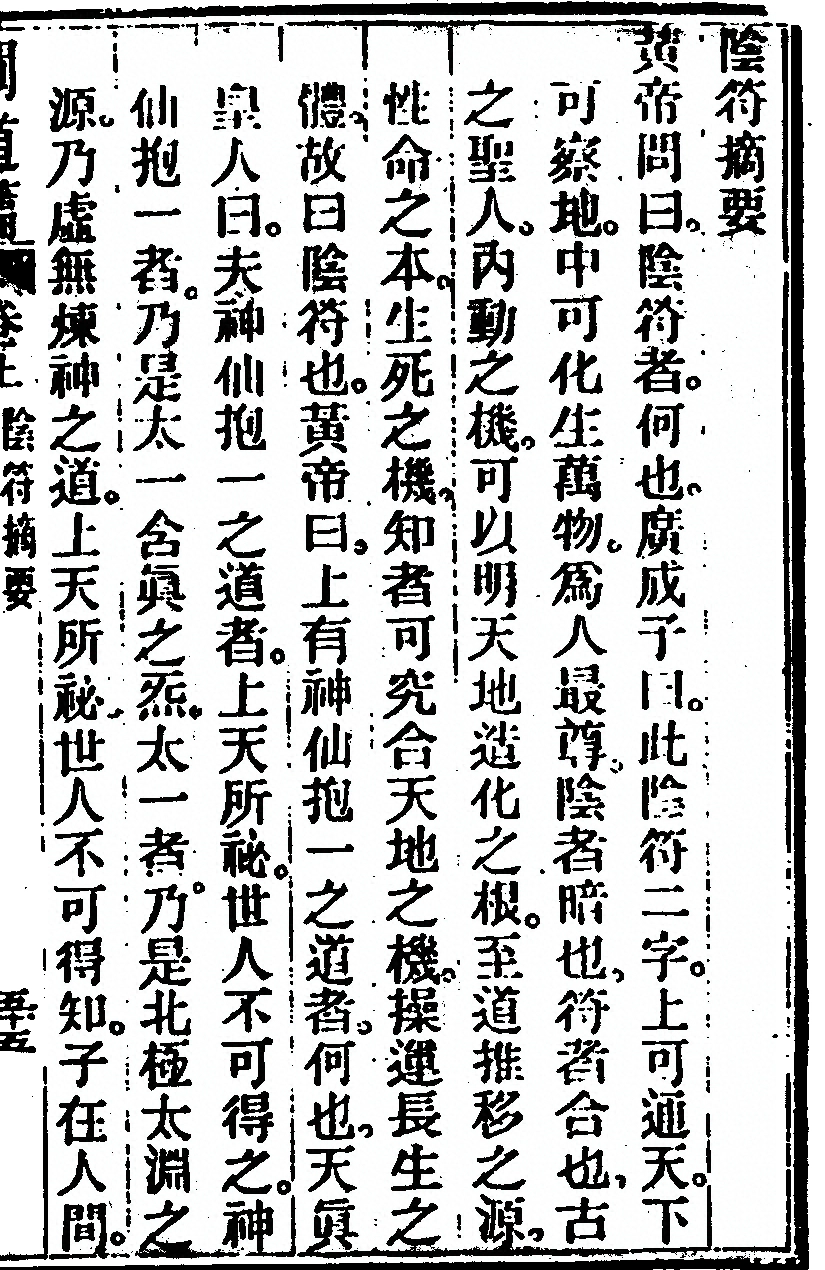 陰符摘要
黃帝問曰。陰符者。何也。廣成子曰。此陰符二字。上可通天。下
可察地。中可化生萬物。爲人最尊。陰者暗也，符者合也，古
之聖人。內動之機。可以明天地造化之根。至道推移之源。
性命之本。生死之機。知者可究合天地之機。操運長生之
體。故曰陰符也。黃帝曰。上有神仙抱一之道者。何也，天眞
皇人曰。夫神仙抱一之道者。上天所祕。世人不可得之。神
仙抱一者。乃是太一含眞之炁。太一者。乃是北極太淵之
源。乃虛無煉神之道。上天所祕。世人不可得知。子在人間。
卷上 陰符摘要